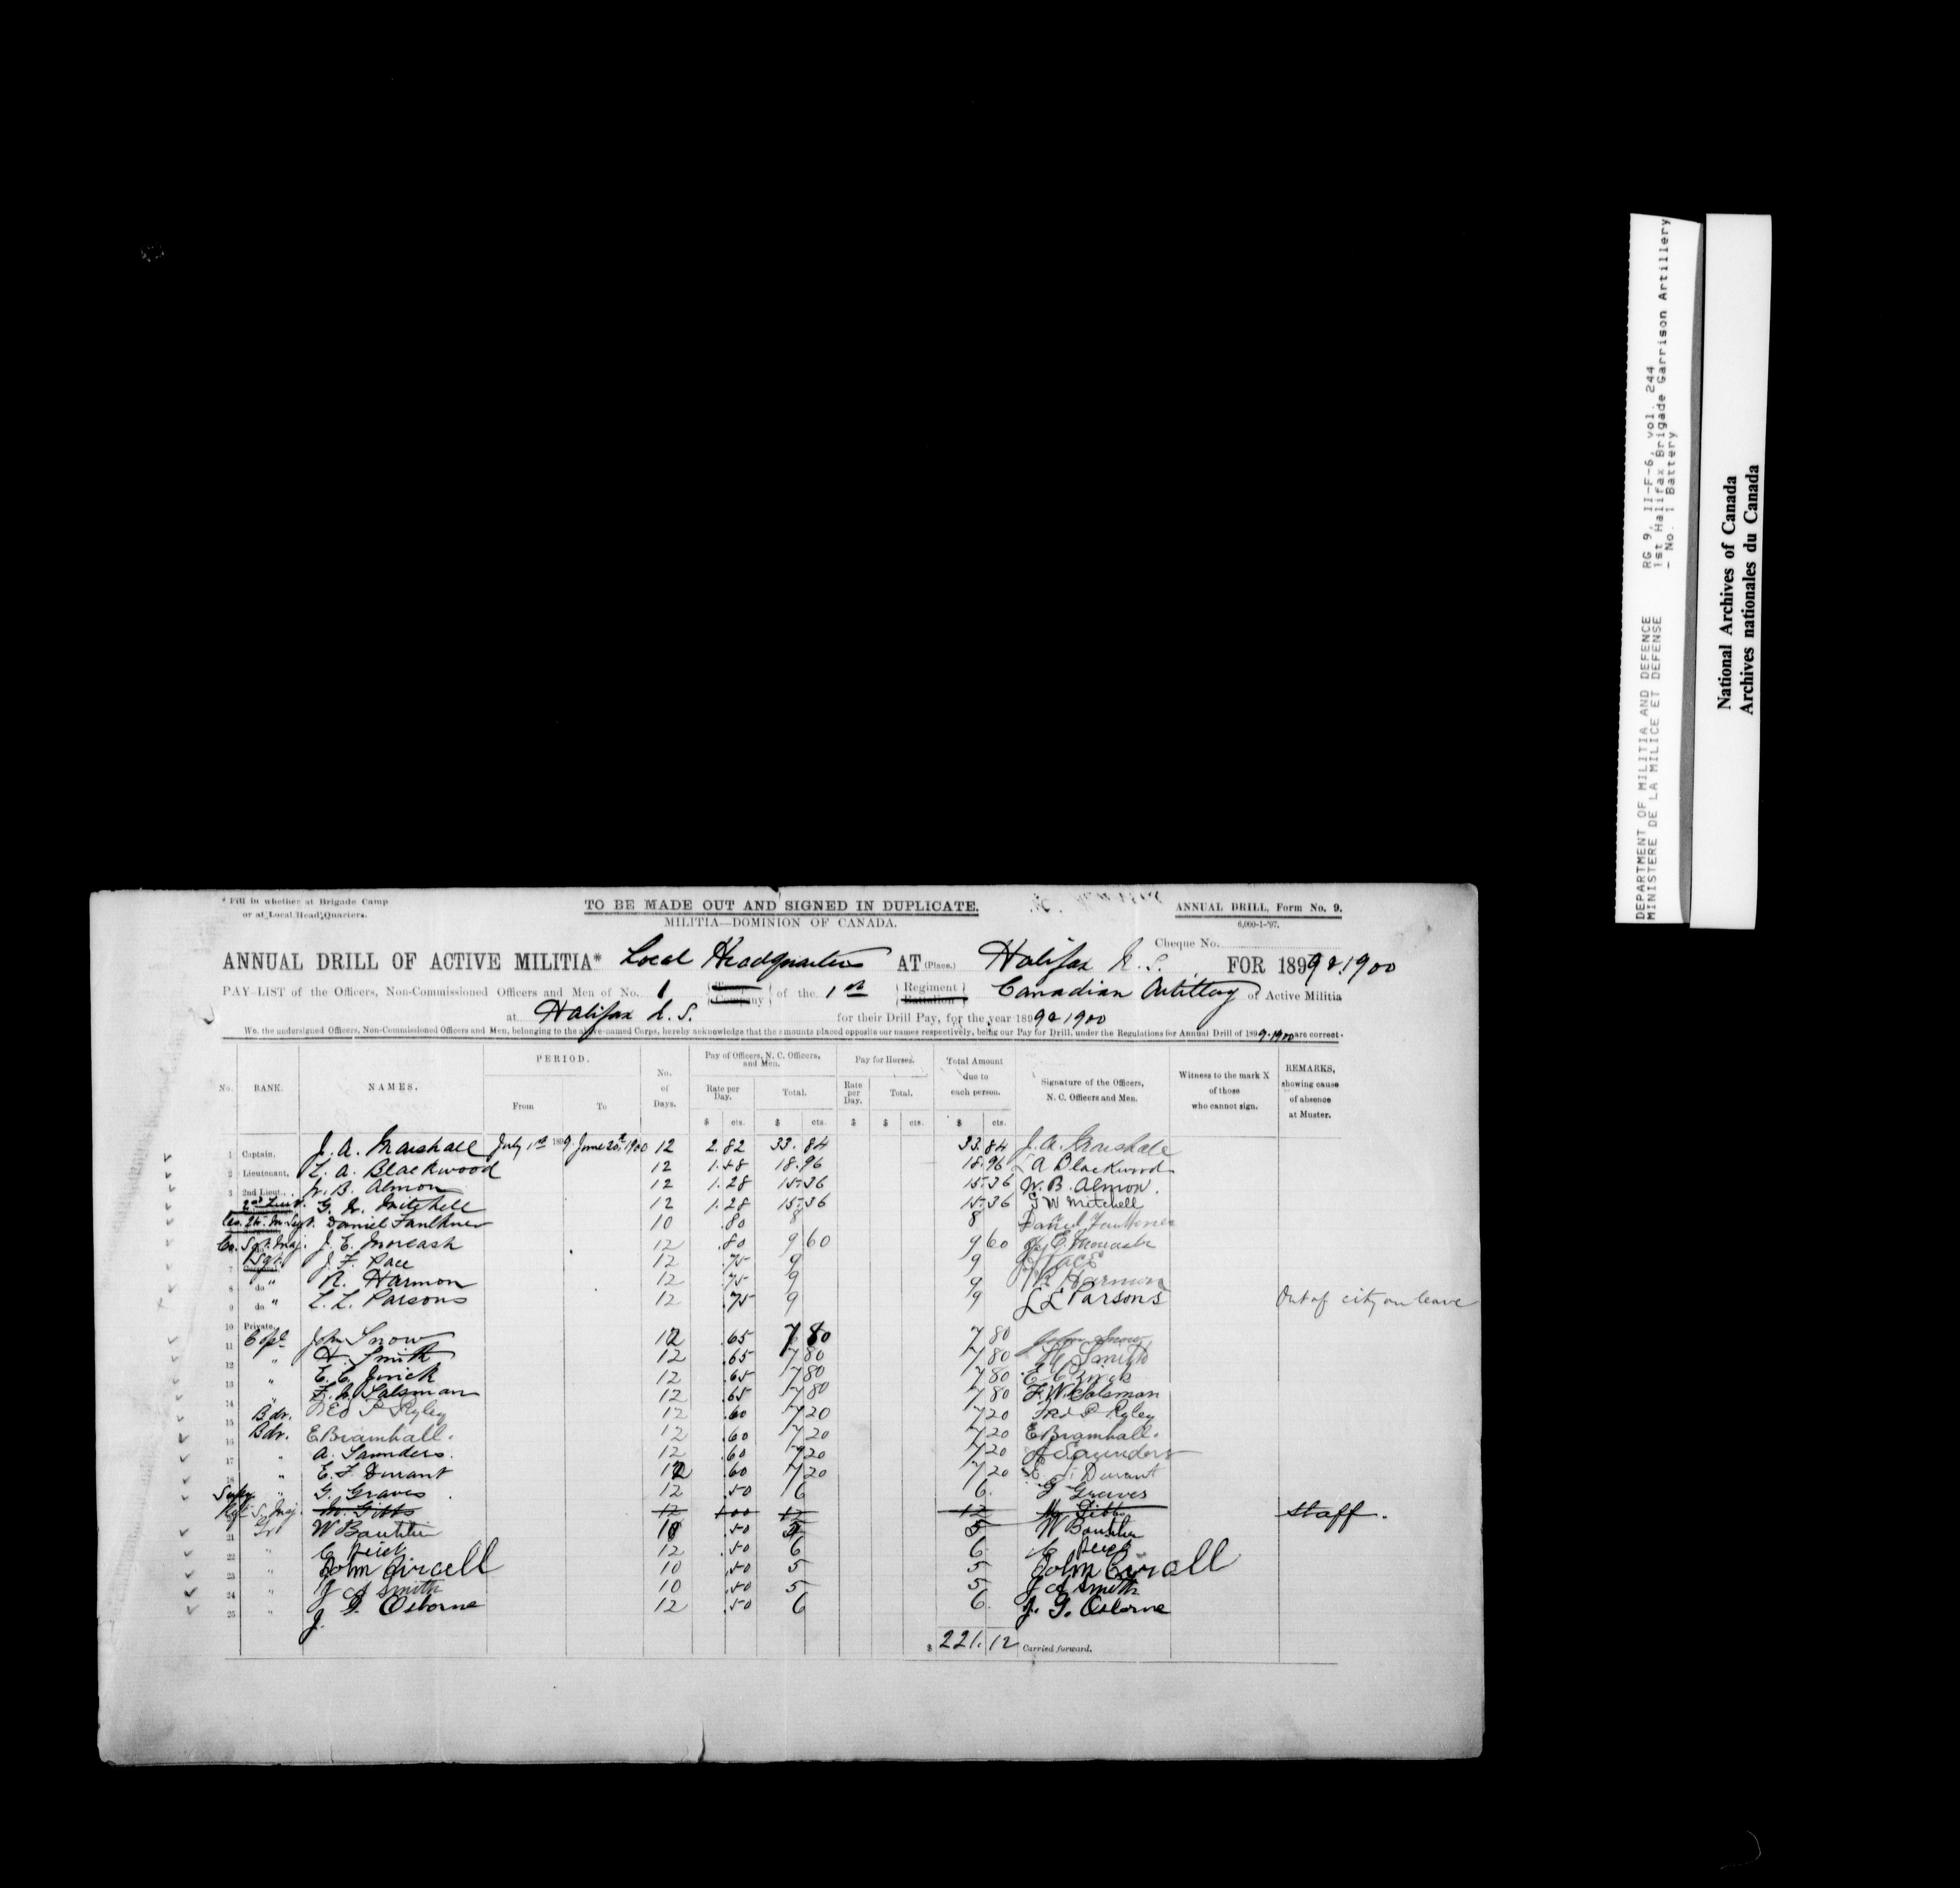 * Fill in whether at Brigade Camp
or at Local Head Quarters.
TO BE MADE OUT AND SIGNED IN DUPLICATE.
MILITIA—DOMINION OF CANADA.
ANNUAL DRILL, Form No. 9.
6,000-1-'97.
Cheque No.
ANNUAL DRILL OF ACTIVE MILITIA* Local Headquarters AT (Place.) Halifax N.S. FOR 1899 & 1900
PAY-LIST of the Officers, Non-Commissioned Officers and Men of No. 1 Troop Company of the 1st Regiment Battalion Canadian Artillery of Active Militia
at Halifax N.S. for their Drill Pay, for the year 1899 & 1900
We, the undersigned Officers, Non-Commissioned Officers and Men, belonging to the above-named Corps, hereby acknowledge that the amounts placed opposite our names respectively, being our Pay for Drill, under the Regulations for Annual Drill of 1899-1900 are correct.
No. RANK. NAMES. PERIOD. From To No. of Days. Pay of Officers, N. C. Officers, and Men. Rate per Day. Total. Pay for Horses. Rate per Day. Total. Total Amount due to each person. Signature of the Officers, N. C. Officers and Men. Witness to the mark X of those who cannot sign. REMARKS, showing cause of absence at Muster.
$ cts. $ cts. $ $ cts. $ cts.
1 Captain, J. A. Marshall July 1st 1899 June 30th 1900 12 2.82 33.84 33.84 J. A. Marshall
2 Lieutenant, L. A. Blackwood 12 1.58 18.96 18.96 L A Blackwood
3 2nd Lieut., W. B. Almon 12 1.28 15.36 15.36 W. B. Almon.
2nd Lieut. G. W. Mitchell 12 1.28 15.36 15.36 G W Mitchell
Co. Qr. M. Sgt. Daniel Faulkner 10 .80 8 8 Daniel Faulkner
Co. Sgt. Maj. J. E. Moreash 12 .80 9.60 9 60 J. E. Moreash
7 Sgt. J. F. Pace 12 .75 9 9 J F Pace
8 do " R. Harmon 12 .75 9 9 R. Harmon
9 do " L. L. Parsons 12 .75 9 9 L L Parsons Out of city on leave
10 Private,
11 Copl John Snow 12 .65 7 80 7 80 John Snow
12 " H. Smith 12 .65 7 80 7 80 H Smith
13 " E. C. 12 .65 7 80 7 80 E C
14 " F. W. Salsman 12 .65 7 80 7 80 F. W. Salsman
15 Bdr. Fred P Ryley 12 .60 7 20 7 20 Fred P Ryley
16 Bdr. E Bramhall. 12 .60 7 20 7 20 E Bramhall.
17 " A. Saunders. 12 .60 7 20 7 20 A Saunders
18 " E. F. Durant 12 .60 7 20 7 20 E. F. Durant
Supy. " G. Graves 12 .50 6 6. G Graves
Rgt. S. Maj. M. Gibbs 12 1.00 12 12 M. Gibbs Staff.
21 Gr. W 10 .50 5 5 W
22 " C 12 .50 6 6 C
23 " John 10 .50 5 5 John
24 " J A Smith 10 .50 5 5 J A Smith
25 " J. G. Osborne 12 .50 6 6. J. G. Osborne
$ 221.12 Carried forward.
DEPARTMENT OF MILITIA AND DEFENCE
MINISTERE DE LA MILICE ET DEFENSE
RG 9, II-F-6, vol. 244
1st Halifax Brigade Garrison Artillery
- No. 1 Battery
National Archives of Canada
Archives nationales du Canada